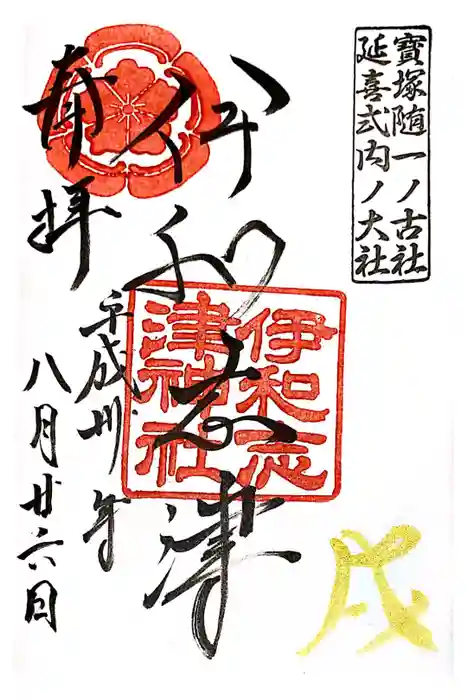 寶塚随一ノ古社
延喜式内ノ大社
伊和志津
伊和志
津神社
奉拝
平成卅年
八月廿六日
戌